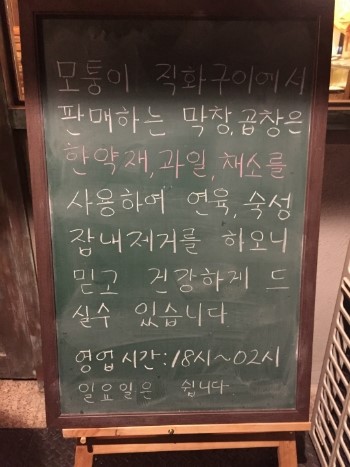 모퉁이 직화구이에서
판매하는 막창,곱창은
한약재,과일,채소를
사용하여 연육,숙성
잡내제거를 하오니
믿고 건강하게 드
실수 있습니다
영업시간:18시~02시
일요일은 쉽니다